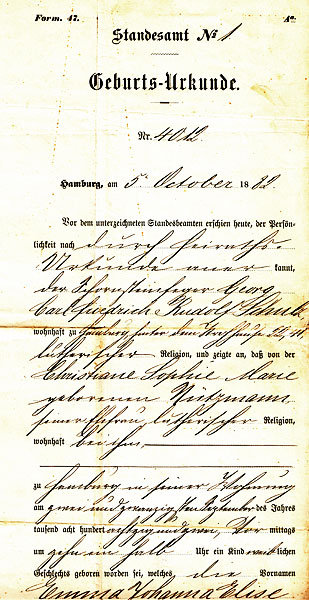 Form. 47. Aa.
Standesamt № 1
Geburts-Urkunde.
Nr. 4012
Hamburg, am 5t October 1882.
Vor dem unterzeichneten Standesbeamten erschien heute, der Persön-
lichkeit nach durch Heiraths-
Urkunde aner kannt,
der Schornsteinfeger Georg
Carl Friedrich Rudolf
wohnhaft zu Hamburg, hinter dem
lutherischer Religion, und zeigte an, daß von der
Christiane Sophie Marie
geborenen Nützmann
seiner Ehefrau, lutherischer Religion,
wohnhaft bei ihm,
zu Hamburg in seiner Wohnung
am zwei und zwanzigsten September des Jahres
tausend acht hundert achtzig und zwei, Vor mittags
um zehn ein halb Uhr ein Kind weib lichen
Geschlechts geboren worden sei, welches die Vornamen
Emma Johanna Elise